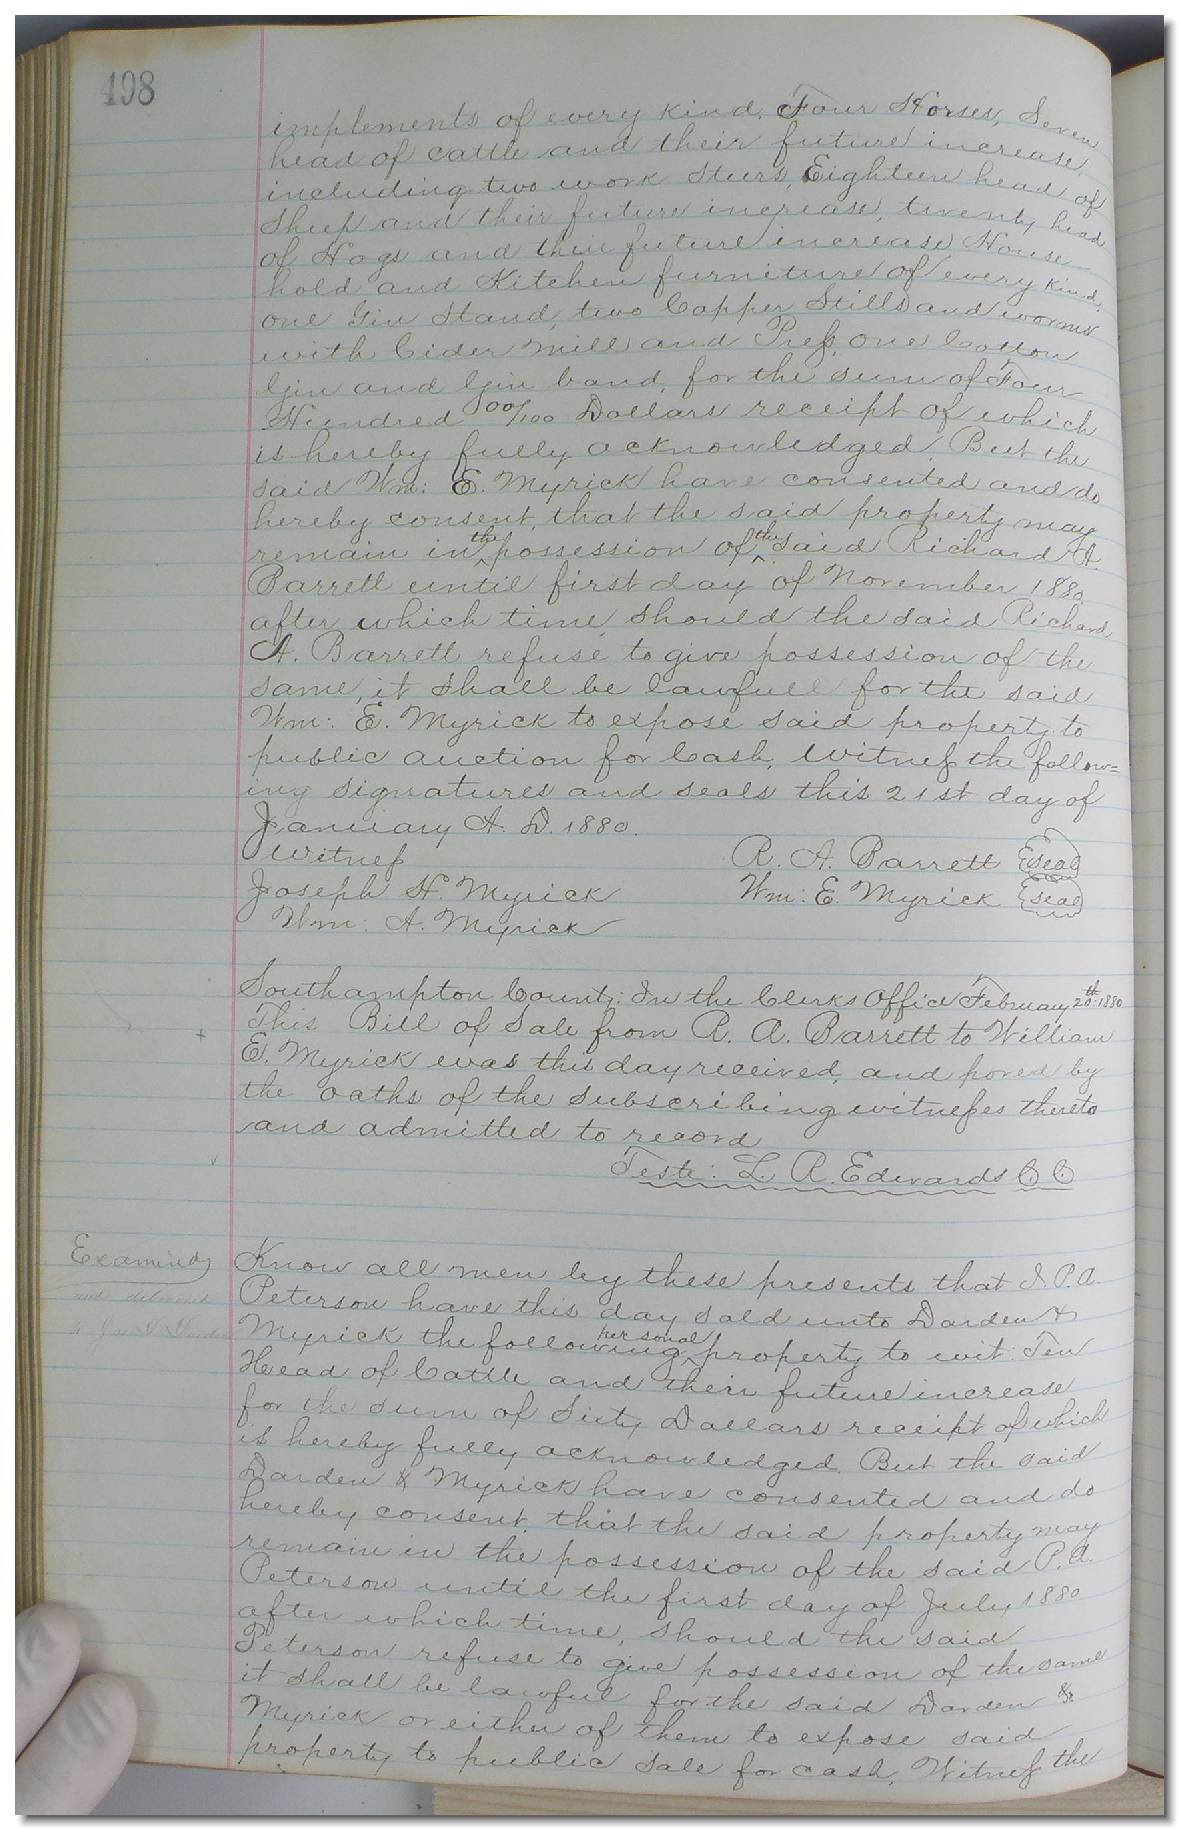 498
implements of every kind, Four Horses, Seven
head of cattle and their future increase,
including two work Steers, Eighteen head of
Sheep and their future increase, twenty head
of Hogs and their future increase House
hold and Kitchen furniture of every kind,
one Gin Stand, two Copper Stills and worms
with Cider Mill and Press, one Cotton
Gin and Gin band, for the sum of Four
Hundred 00/100 Dollars receipt of which
is hereby fully acknowledged. But the
said Wm: E. Myrick have consented and do
hereby consent, that the said property may
remain in the possession of the said Richard A.
Barrett until first day of November 1880.
after which time, should the said Richard
A. Barrett refuse to give possession of the
same, it shall be lawfull for the said
Wm: E. Myrick to expose said property to
public auction for Cash, Witness the follow=
ing signatures and seals this 21st day of
January A. D. 1880.
Witness R. A. Barrett {seal}
Joseph H. Myrick Wm: E. Myrick {seal}
Wm: A. Myrick
Southampton County: In the Clerks Office February 20th: 1880
This Bill of Sale from R. A. Barrett to William
E. Myrick was this day received, and poved by
the oaths of the subscribing witnesses thereto
and admitted to record
Teste: L. R. Edwards C. C.
Examined
and delivered
to Jas
Know all men by these presents that I P. A.
Peterson have this day sold unto Darden &
Myrick the following personal property to wit: Ten
Head of Cattle and their future increase
for the sum of Sixty Dollars receipt of which
is hereby fully acknowledged. But the said
Darden & Myrick have consented and do
hereby consent, that the said property may
remain in the possession of the said P. A.
Peterson until the first day of July 1880
after which time, should the said
Peterson refuse to give possession of the same
it shall be lawful for the said Darden &
Myrick or either of them to expose said
property to public sale for cash, Witness the